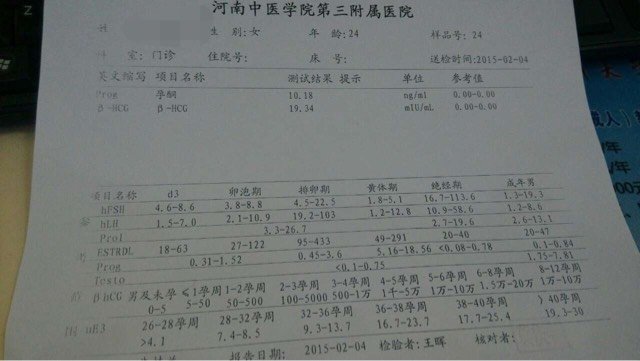 河南中医学院第三附属医院
姓 性 别:女 年 龄:24 样品号: 24
科 室: 门诊 住院号: 床 号: 送检时间:2015-02-04
英文缩写 项目名称 测试结果 提示 单位 参考值
Prog 孕酮 10.18 ng/ml 0.00-0.00
β-HCG β-HCG 19.34 mIU/mL 0.00-0.00
项目名称 d3 卵泡期 排卵期 黄体期 绝经期 成年男
hFSH 4.6-8.6 3.8-8.8 4.5-22.5 1.8-5.1 16.7-113.6 1.3-19.3
参 hLH 1.5-7.0 2.1-10.9 19.2-103 1.2-12.8 10.9-58.6 1.2-8.6
Prol 3.3-26.7 2.7-19.6 2.6-13.1
考 ESTRDL 18-63 27-122 95-433 49-291 20-40 20-47
Prog 0.31-1.52 0.45-3.6 5.16-18.56 <0.08-0.78 0.1-0.84
Testo <0.1-0.75 1.75-7.81
βhCG 男及未孕 ≤1孕周 1-2孕周 2-3孕周 3-4孕周 4-5孕周 5-6孕周 6-8孕周 8-12孕周
0-5 5-50 50-500 100-5000 500-1万 1千-5万 1万-10万 1.5万-20万 1万-10万
围 uE3 26-28孕周 28-32孕周 32-36孕周 36-38孕周 38-40孕周 >40孕周
>4.1 7.4-8.5 9.3-13.7 16.7-23.7 17.7-25.4 19.3-30
报告日期: 2015-02-04 检验者: 王晖 核对者: